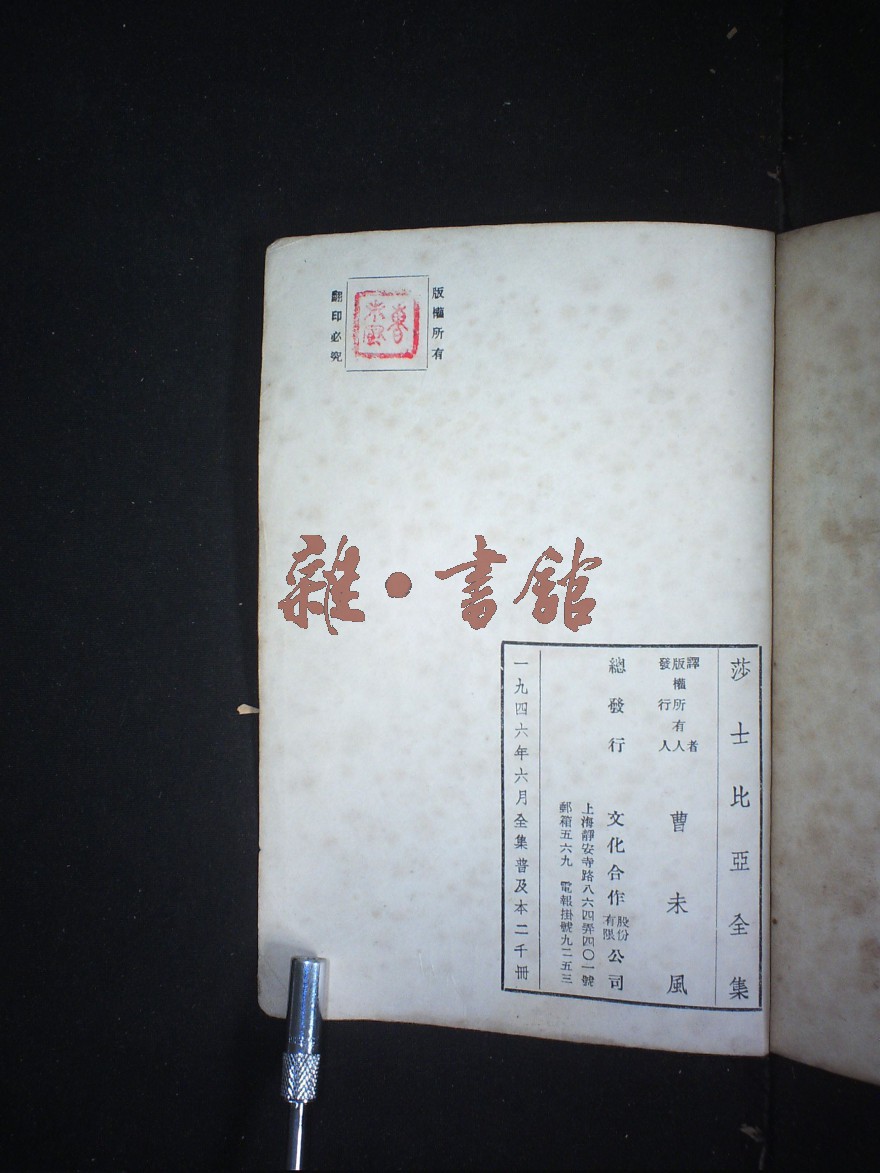 版權所有
曹未風
翻印必究
雜·書舘
莎士比亞全集
譯者
版權所有人
發行人
曹未風
總發行 文化合作股份有限公司
上海靜安寺路八六四弄四〇一號
郵箱五六九 電報掛號九二五三
一九四六年六月全集普及本二千冊